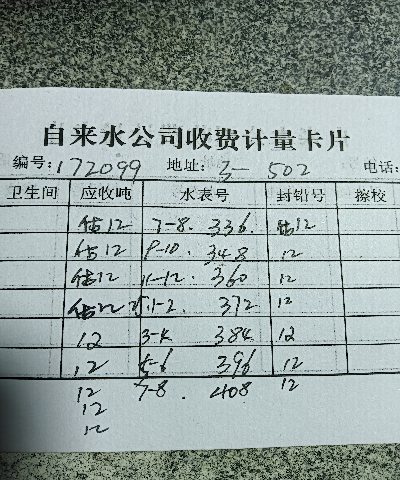 自来水公司收费计量卡片
编号: 172099 地址: 3- 502 电话:
卫生间 应收吨 水表号 封铅号 擦校
估12 7-8. 336. 估12
估12 9-10. 348 12
估12 11-12. 360 12
1-2. 372 12
12 3-4 384 12
12 5-6 396 12
12 7-8 . 408 12
12
12